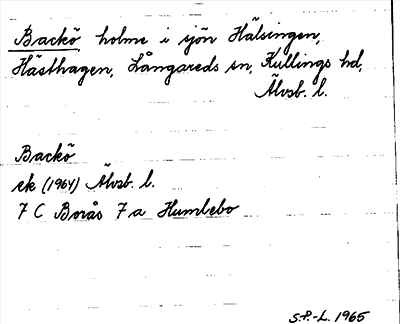 Backö, holme i sjön Hälsingen,
Hästhagen, Långareds sn, Kullings hd,
Älvsb. l.
Backö
ek (1964) Älvsb. l.
7 C Borås 7 a Humlebo
S.P.-L. 1965